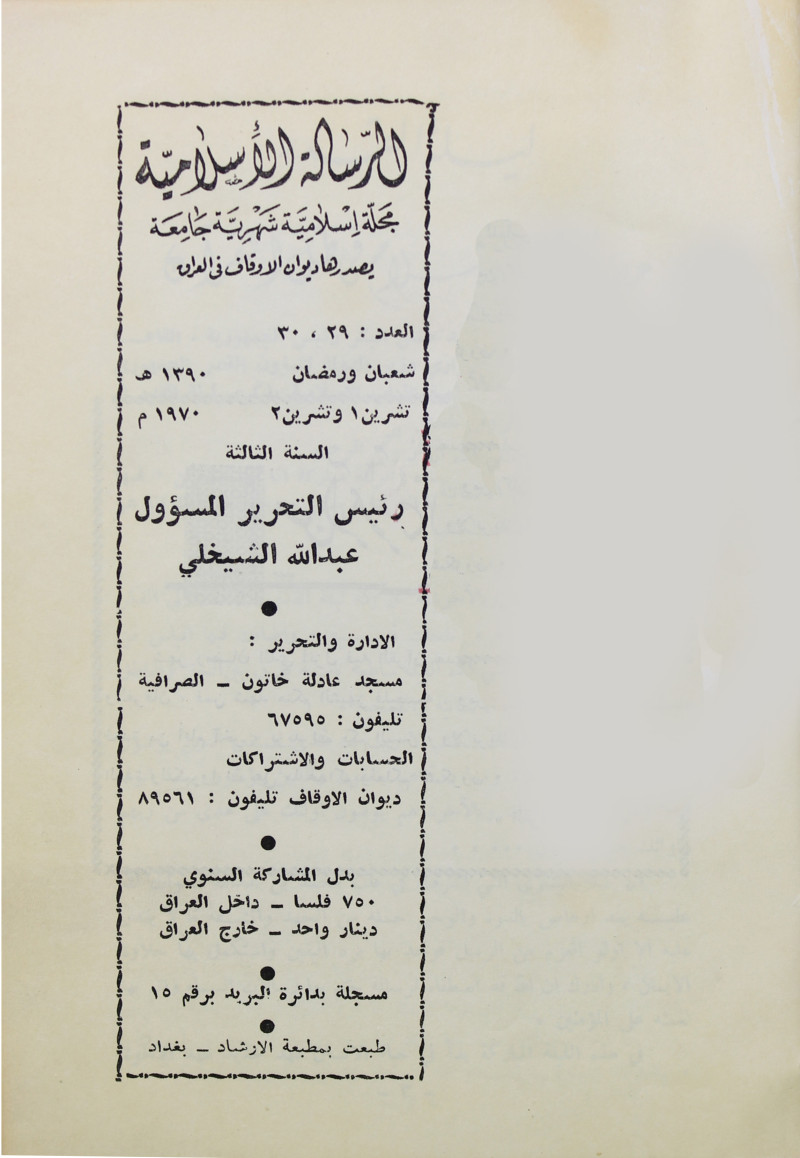 الرّسالة الأسلاميّة
مَجَلّة إسْلَامِيَّة شَهْرِيَّة جَامِعَة
يصدرها ديوان الاوقاف في العراق
العدد : ٢٩ ، ٣٠
شعبان ورمضان ١٣٩٠ هـ
تشرين١ وتشرين٢ ١٩٧٠ م
السنة الثالثة
رئيس التحرير المسؤول
عبدالله الشيخلي
الادارة والتحرير :
مسجد عادلة خاتون ــ الصرافية
تليفون : ٦٧٥٩٥
الحسابات والاشتراكات
ديوان الاوقاف تليفون : ٨٩٥٦١
بدل المشاركة السنوي
٧٥٠ فلسا ــ داخل العراق
دينار واحد ــ خارج العراق
مسجلة بدائرة البريد برقم ١٥
طبعت بمطبعة الارشاد ــ بغداد